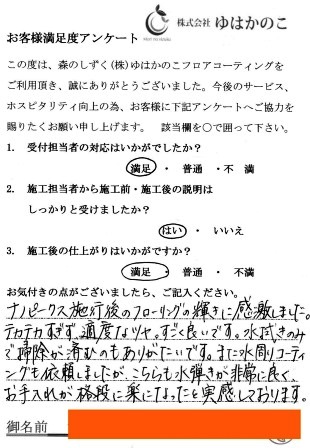 株式会社 ゆはかのこ
お客様満足度アンケート
この度は、森のしずく(株)ゆはかのこフロアコーティングを
ご利用頂き、誠にありがとうございました。今後のサービス、
ホスピタリティ向上の為、お客様に下記アンケートへご協力を
賜りたくお願い申し上げます。 該当欄を〇で囲って下さい。
1. 受付担当者の対応はいかがでしたか?
満足 ・ 普通 ・不 満
2. 施工担当者から施工前・施工後の説明は
しっかりと受けましたか?
はい ・ いいえ
3. 施工後の仕上がりはいかがですか?
満足 ・ 普通 ・不 満
お気付きの点がございましたら、ご記入ください。
ナノピークス施行後のフローリングの輝きに感激しました。
テカテカすぎず、適度なツヤ。すごく良いです。水拭きのみ
で掃除が済むのもありがたいです。また水周りコーティ
ングも依頼しましたが、こちらも水弾きが非常に良く、
お手入れが格段に楽になったと実感しております。
御名前